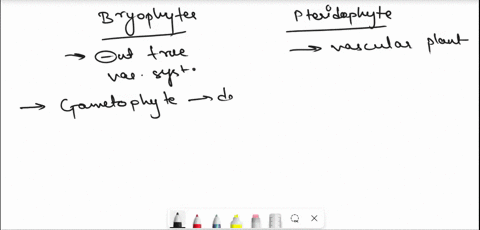 Bryophytes
Pteridophyte
→ ⊖out true
vas. syst.
→ vascular plant
→ Gametophyte → do